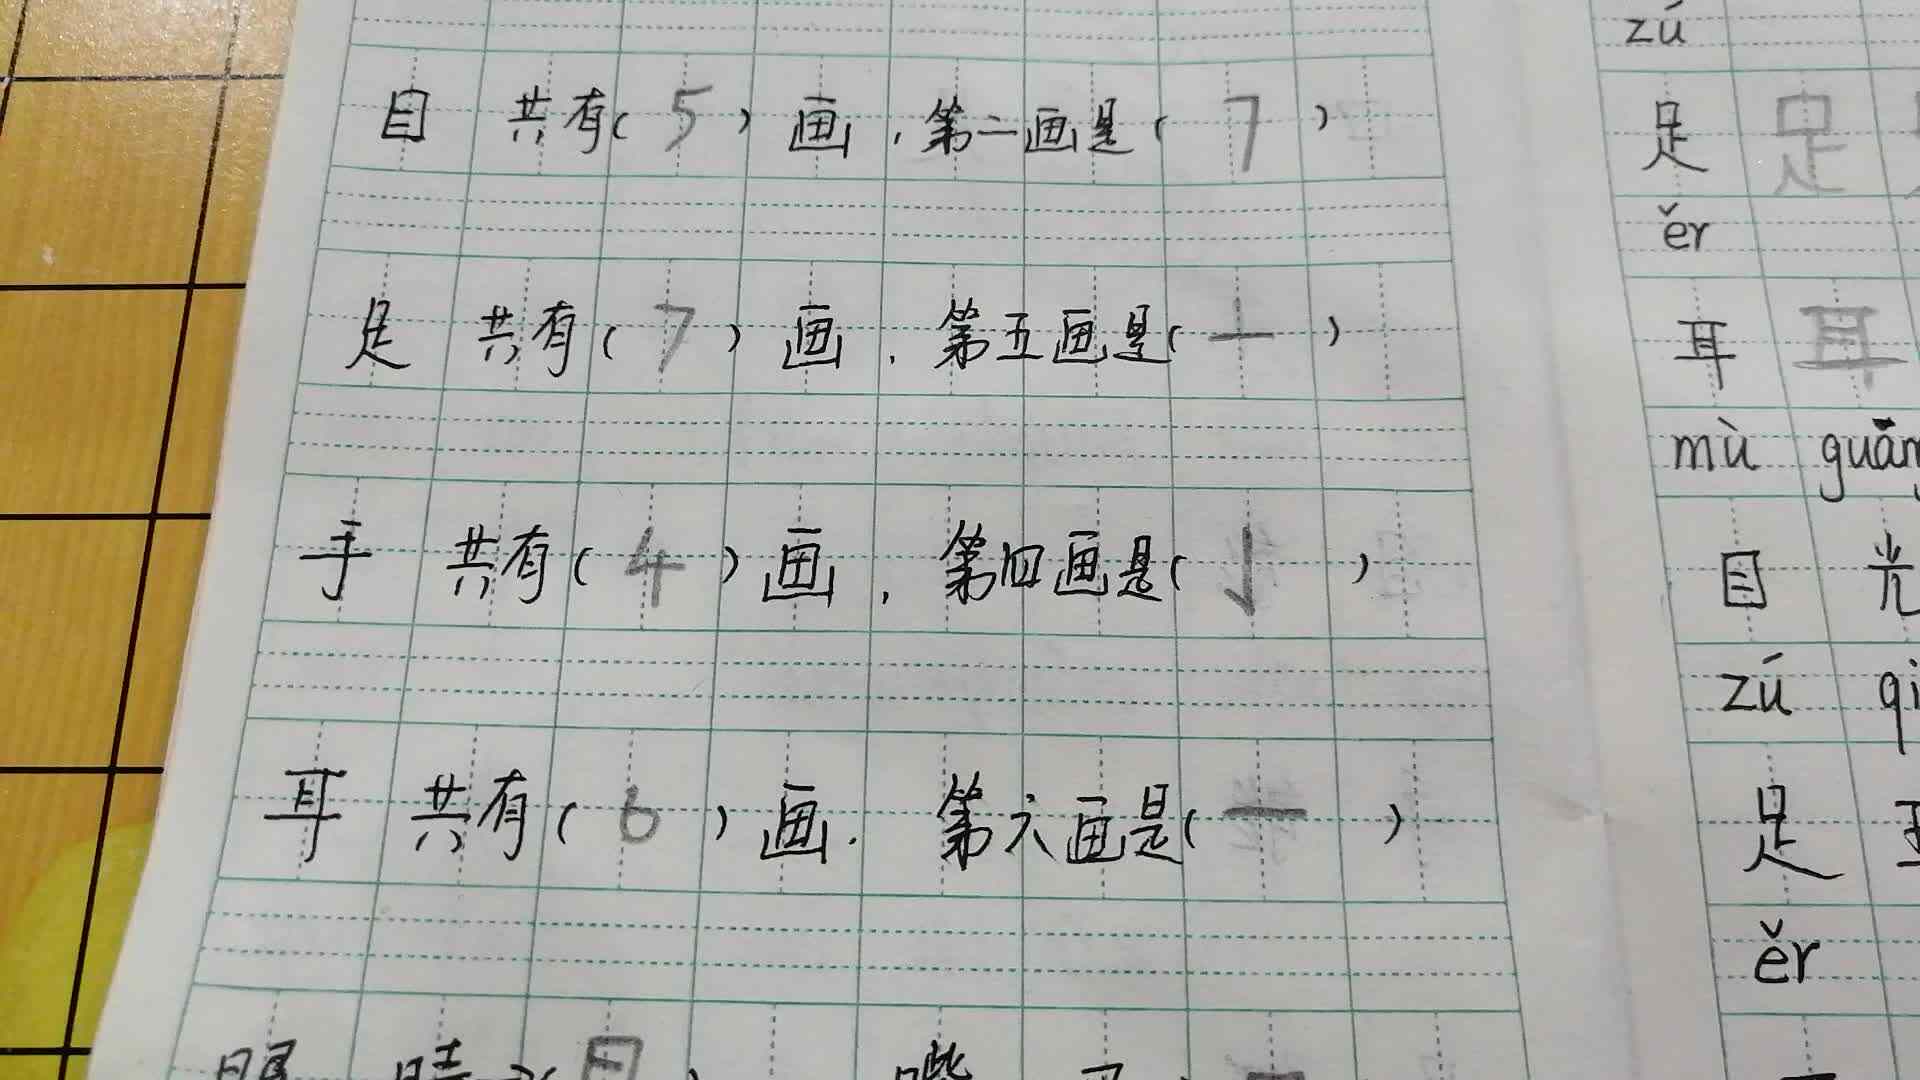 目 共有( 5 )画,第二画是( ㇆ )
足 共有( 7 )画,第五画是( 十 )
手 共有( 4 )画,第四画是( 亅 )
耳 共有( 6 )画.第六画是( 一 )
zú
足 足
ěr
耳 耳
mù guāng
目 光
zú
足
ěr